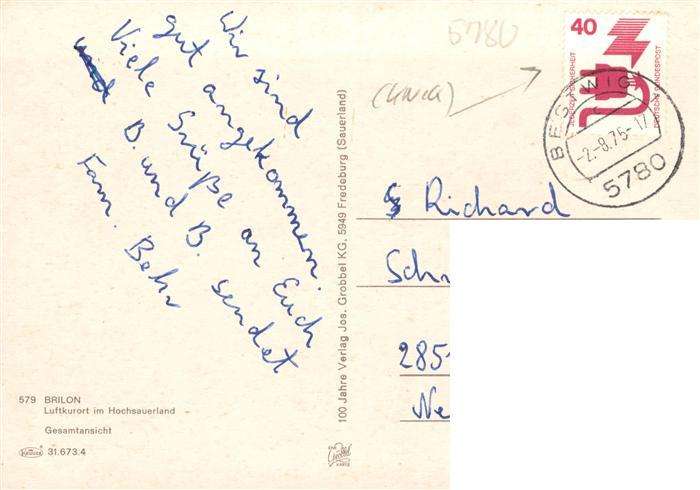 Wir sind
gut angekommen.
Viele Grüße an Euch
und B. und B. sendet
Fam. Behr
579 BRILON
Luftkurort im Hochsauerland
Gesamtansicht
31.673.4
100 Jahre Verlag Jos. Grobbel KG, 5949 Fredeburg (Sauerland)
5780
40
DEUTSCHE BUNDESPOST
BESTWIG
-2.-8.76-17
5780
Richard
Sch
285
Ne